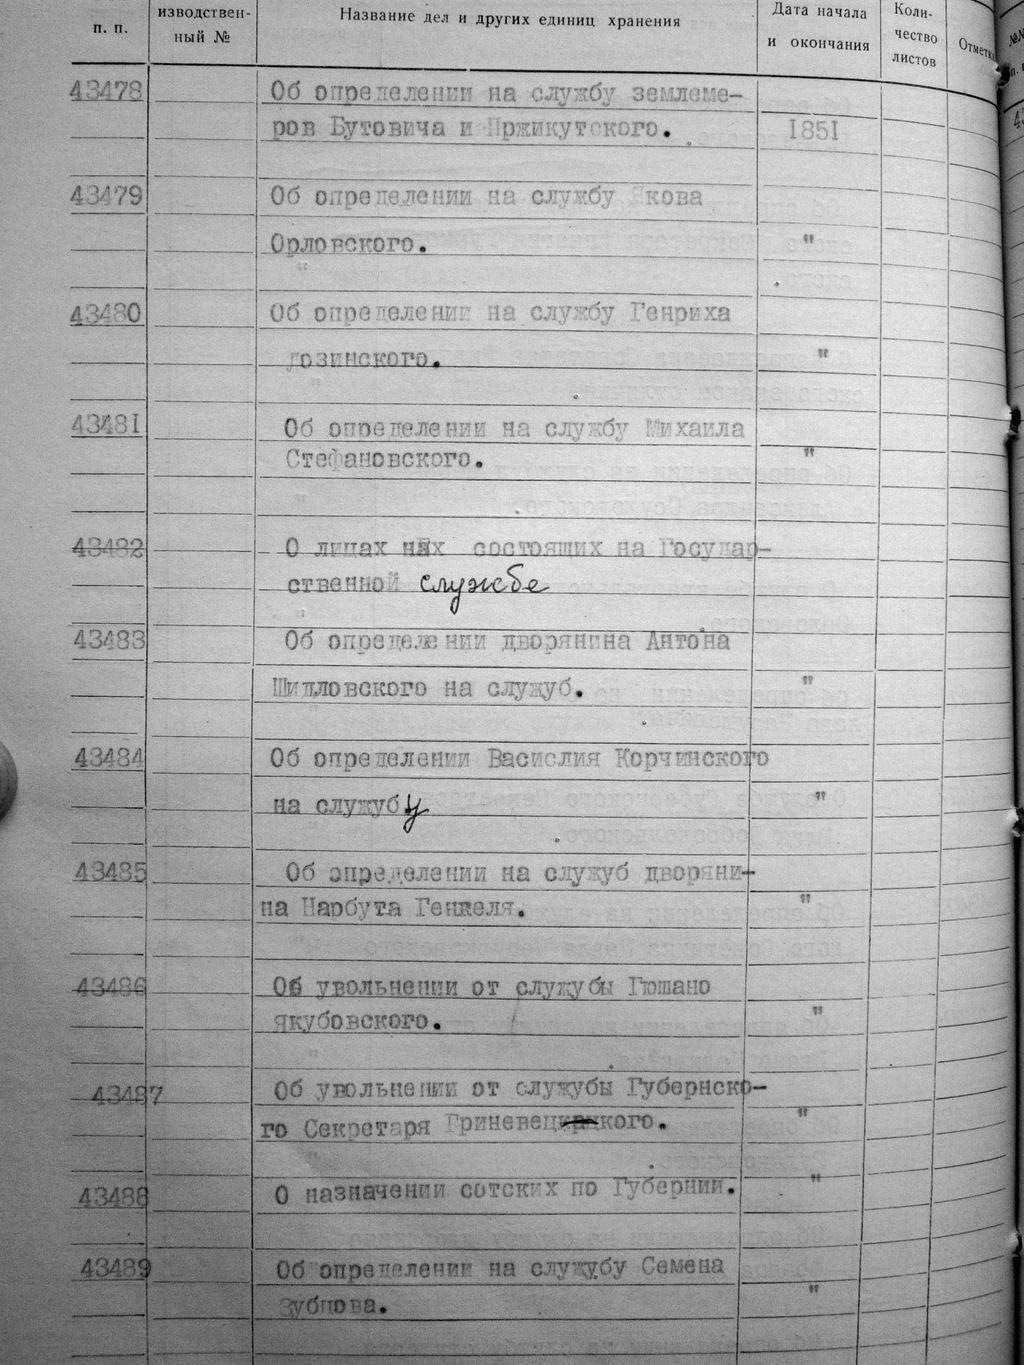 п. п.
изводствен-
ный №
Название дел и других единиц хранения
Дата начала
и окончания
Коли-
чество
листов
Отметк
43478 Об определении на службу землеме-
ров Бутовича и Пржикутского. 1851
43479 Об определении на службу Якова
Орловского. "
43480 Об определении на службу Генриха
Лозинского. "
43481 Об определении на службу Михаила
Стефановского. "
43482 О лицах состоящих на Государ-
ственной службе
43483 Об определении дворянина Антона
Шидловского на служуб. "
43484 Об определении Васислия Корчинского
на службу "
43485 Об определении на служуб дворяни-
на Нарбута Генкеля. "
43486 Об увольнении от служубы Гюшано
Якубовского. "
43487 Об увольнении от служубы Губернско-
го Секретаря Гриневецкого. "
43488 О назначении сотских по Губернии. "
43489 Об определении на служубу Семена
Зубцова. "